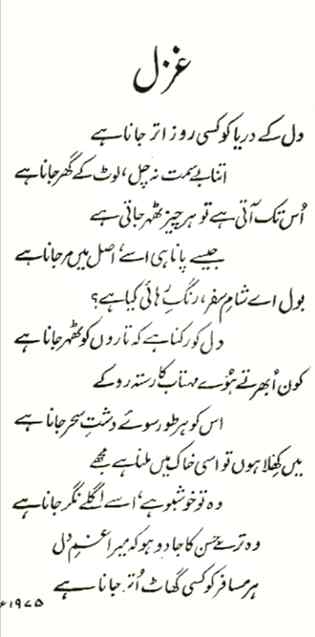 غزل
دل کے دریا کو کسی روز اتر جانا ہے
اتنا بے سمت نہ چل، لوٹ کے گھر جانا ہے
اُس تک آتی ہے تو ہر چیز ٹھہر جاتی ہے
جیسے پانا ہی اسے، اصل میں مر جانا ہے
بول اے شامِ سفر، رنگِ رہائی کیا ہے؟
دل کو رکنا ہے کہ تاروں کو ٹھہر جانا ہے
کون اُبھرتے ہوئے مہتاب کا رستہ روکے
اس کو ہر طور سوئے دشتِ سحر جانا ہے
میں کِھلا ہوں تو اسی خاک میں ملنا ہے مجھے
وہ تو خوشبو ہے، اسے اگلے نگر جانا ہے
وہ ترے حسن کا جادو ہو کہ میرا غمِ دل
ہر مسافر کو کسی گھاٹ اُتر جانا ہے
۱۹۷۵ء